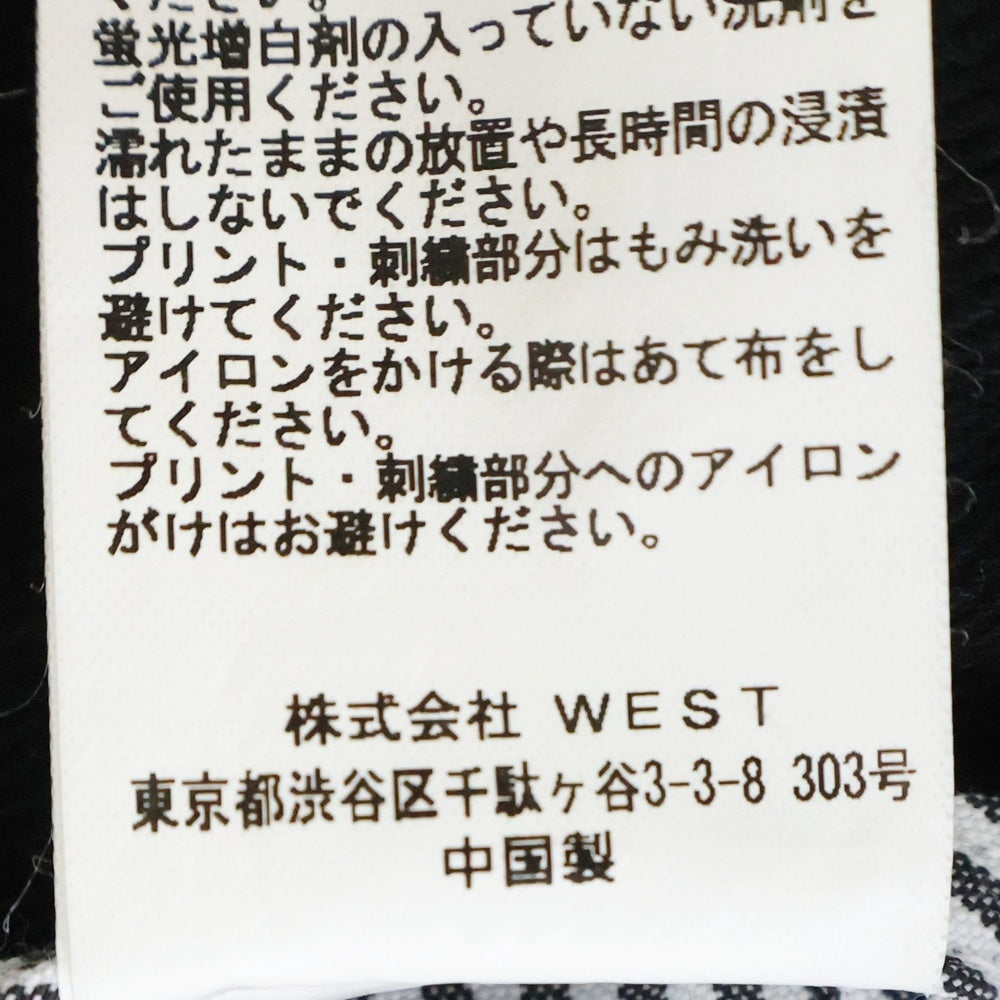 ください。
蛍光増白剤の入っていない洗剤を
ご使用ください。
濡れたままの放置や長時間の浸漬
はしないでください。
プリント・刺繍部分はもみ洗いを
避けてください。
アイロンをかける際はあて布をし
てください。
プリント・刺繍部分へのアイロン
がけはお避けください。
株式会社 WEST
東京都渋谷区千駄ヶ谷3-3-8 303号
中国製